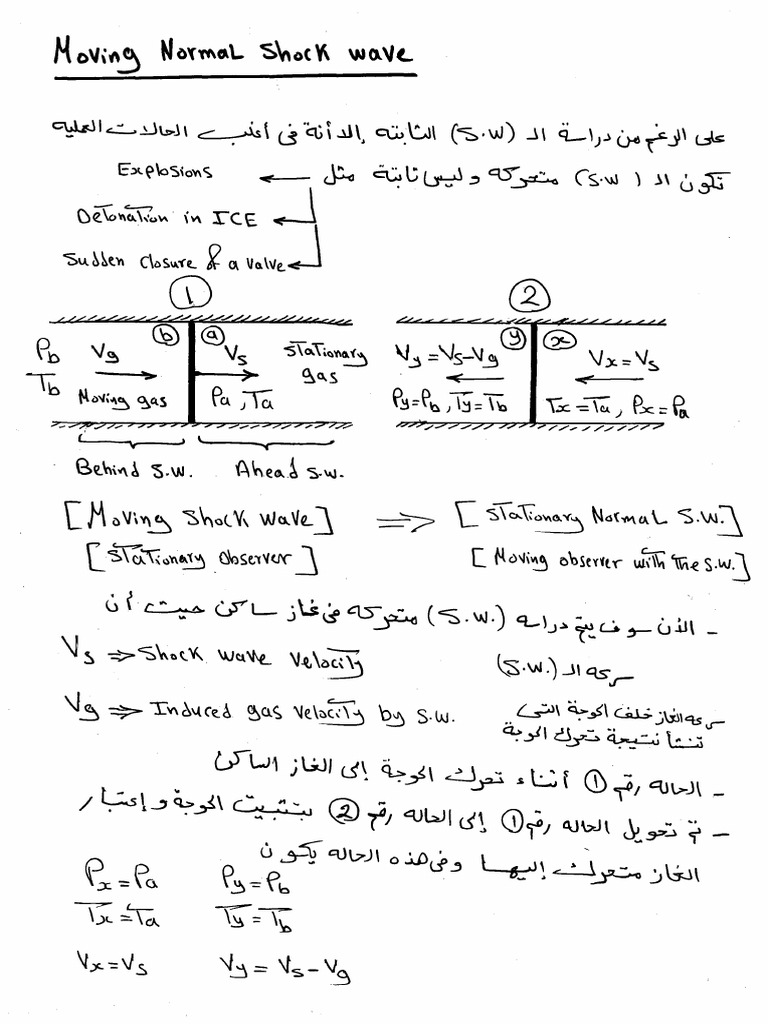 Moving Normal Shock wave
على الرغم من دراسة الـ (S.W) الثابته إلا أنة فى أغلب الحالات العمليه
تكون الـ (S.W) متحركه وليس ثابتة مثل ← Explosions
Detonation in ICE ←
Sudden closure of a valve ←
1
2
Pb
Tb
Vg
b
a
Vs
Stationary gas
Moving gas
Pa , Ta
Vy = Vs-Vg
y
x
Vx = Vs
Py = Pb , Ty = Tb
Tx = Ta , Px = Pa
Behind S.W.
Ahead S.W.
[Moving Shock wave] ⇒ [Stationary Normal S.W.]
[Stationary Observer]
[Moving observer with the S.W.]
- الأن سوف يتم دراسه (S.W.) متحركه فى غاز ساكن حيث أن
Vs ⇒ Shock wave Velocity
سرعه الـ (S.W.)
Vg ⇒ Induced gas velocity by S.W.
سرعه الغاز خلف الموجة التى
تنشأ نتيجة تحرك الموجة
- الحاله رقم ① أثناء تحرك الموجة إلى الغاز الساكن
- تم تحويل الحاله رقم ① إلى الحاله رقم ② بتثبيت الموجة وإعتبار
الغاز متحرك إليها وفى هذه الحاله يكون
Px = Pa Py = Pb
Tx = Ta Ty = Tb
Vx = Vs Vy = Vs - Vg